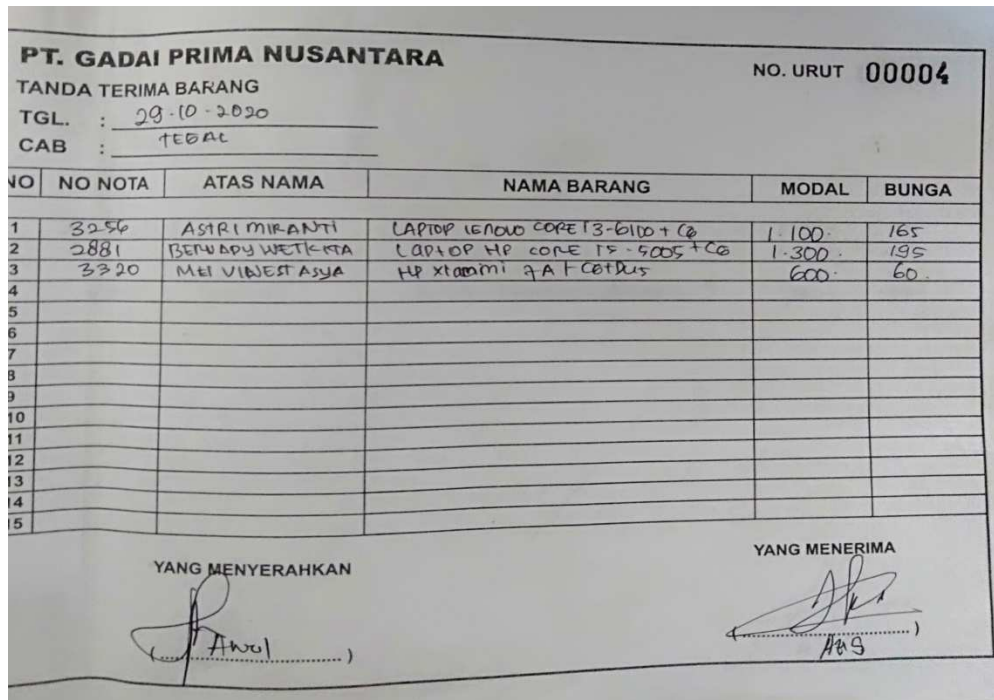 PT. GADAI PRIMA NUSANTARA
NO. URUT 00004
TANDA TERIMA BARANG
TGL. : 29-10-2020
CAB : TEGAL
NO NO NOTA ATAS NAMA NAMA BARANG MODAL BUNGA
1 3256 ASTRI MIRANTI LAPTOP LENOVO CORE I3-6100 + CG 1.100. 165
2 2881 LAPTOP HP CORE I5-5005 + CG 1.300. 195
3 3320 MEI VINEST ASYA HP XIAMMI 7A + CG + DUS 600. 60.
4
5
6
7
8
9
10
11
12
13
14
15
YANG MENYERAHKAN YANG MENERIMA
(....................) (....................)
Awal